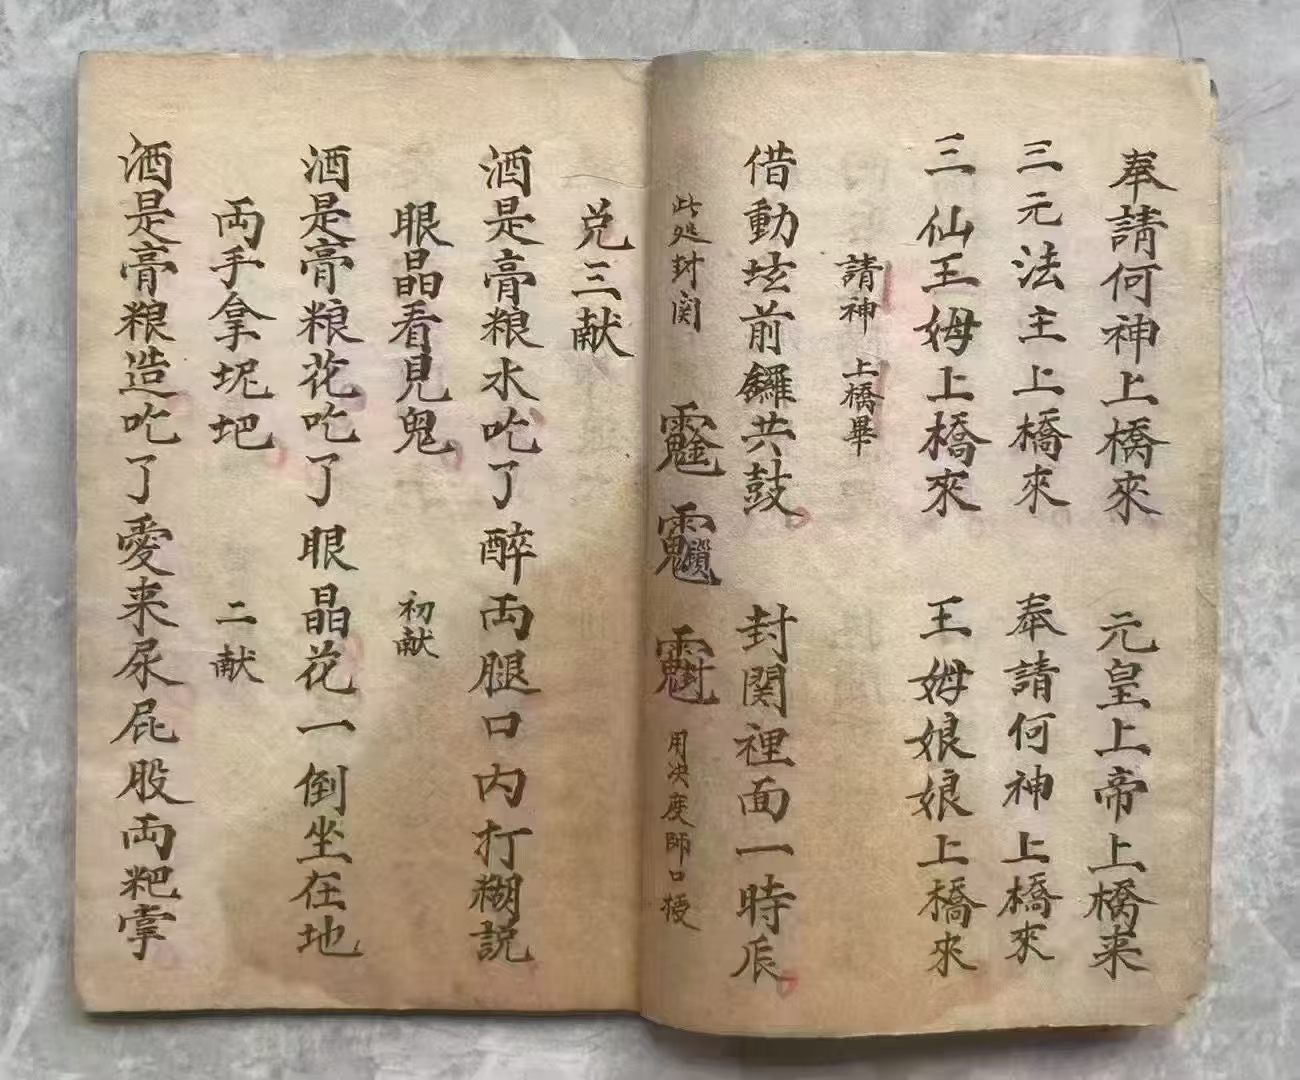 奉請何神上橋來　元皇上帝上橋来
三元法主上橋來　奉請何神上橋來
三仙王姆上橋來　王姆娘娘上橋來
請神　上橋畢
借動坛前鑼共鼓　封関裡面一時辰
此处封関　用决度師口授
兑三献
酒是膏粮水吃了醉両腿口内打糊説
眼晶看見鬼　初献
酒是膏粮花吃了眼晶花一倒坐在地
両手拿坭坯　二献
酒是膏粮造吃了愛来尿屁股両粑掌